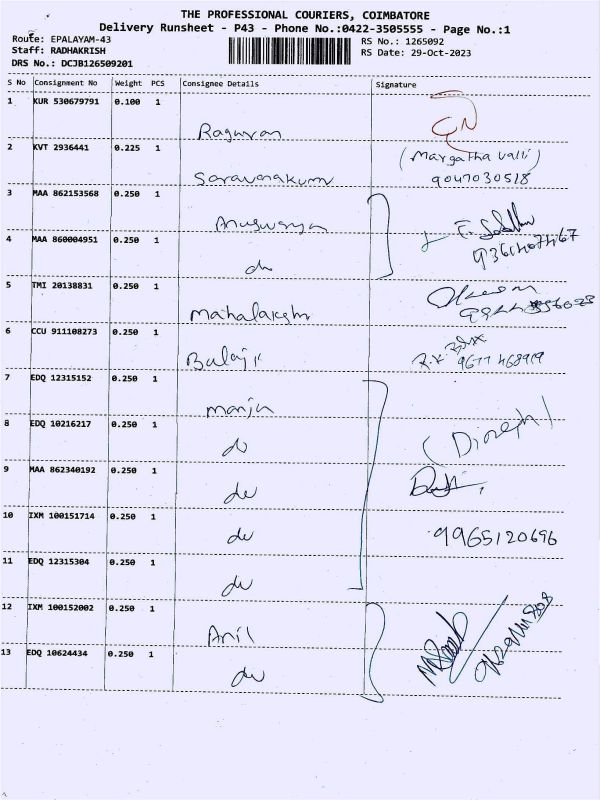 THE PROFESSIONAL COURIERS, COIMBATORE
Delivery Runsheet - P43 - Phone No.:0422-3505555 - Page No.:1
Route: EPALAYAM-43 RS No.: 1265092
Staff: RADHAKRISH RS Date: 29-Oct-2023
DRS No.: DCJB126509201
S No Consignment No Weight PCS Consignee Details Signature
1 KUR 530679791 0.100 1
Raguram GN
2 KVT 2936441 0.225 1 (Margatha valli)
Saravanakumr 9047030518
3 MAA 862153568 0.250 1
Anuswarya
4 MAA 860004951 0.250 1 9361407467
do
5 TMI 20138831 0.250 1
Mahalakshmi
6 CCU 911108273 0.250 1
Balaji 9677468919
7 EDQ 12315152 0.250 1
manju
8 EDQ 10216217 0.250 1
do (Dinesh)
9 MAA 862340192 0.250 1
do
10 IXM 100151714 0.250 1
do 9965120696
11 EDQ 12315304 0.250 1
do
12 IXM 100152002 0.250 1
Anil
13 EDQ 10624434 0.250 1
do